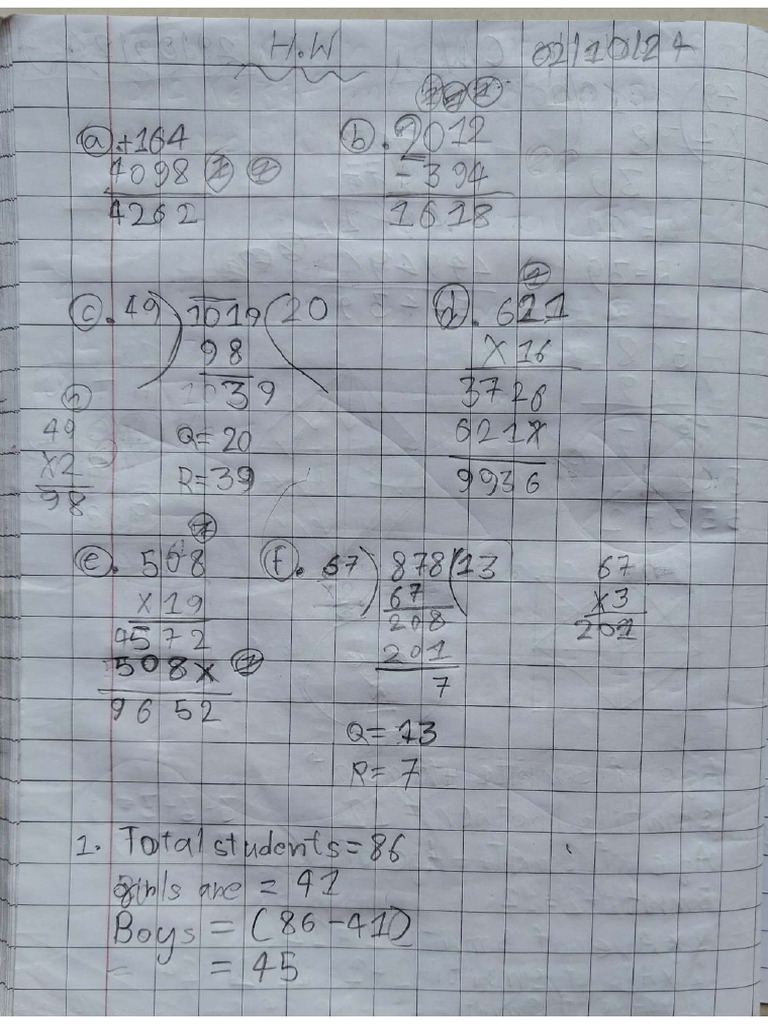 H.W 02/10/24
ⓐ +164
4098 ① ①
4262
ⓑ. 2012
- 394
1618
ⓒ. 49) 1019 (20
98
39
49
X2
98
Q = 20
R = 39
①
ⓓ. 621
X 16
3726
621X
9936
ⓔ. 508
X 19
4572
508x ①
9652
ⓕ. 67) 878 (13
67
208
201
7
67
X3
201
Q = 13
R = 7
1. Total students = 86
girls are = 41
Boys = (86 - 41)
= 45